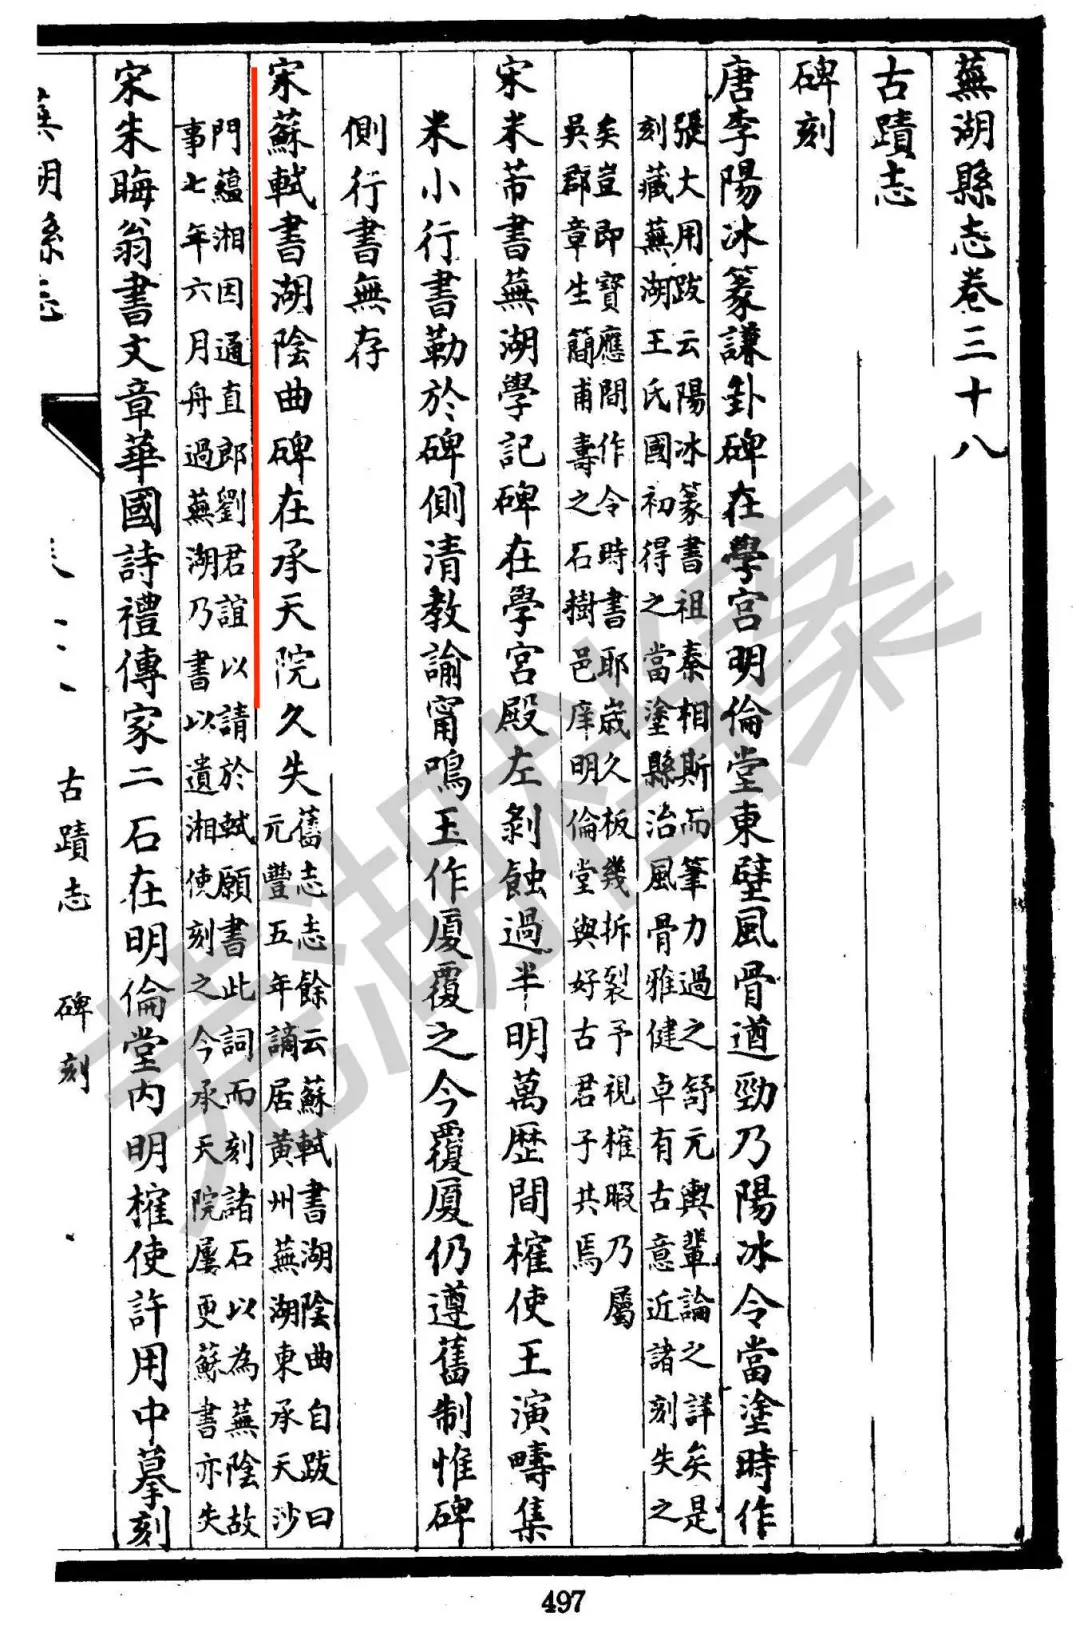 蕪湖縣志卷三十八
古蹟志
碑刻
唐李陽冰篆謙卦碑在學宮明倫堂東壁風骨遒勁乃陽冰令當塗時作
張大用跋云陽冰篆書祖秦相斯而筆力過之舒元輿輩論之詳矣是
刻藏蕪湖王氏國初得之當塗縣治風骨雅健卓有古意近諸刻失之
矣豈即寶應間作令時書耶歲久板幾拆裂予視榷暇乃屬
吳郡章生簡甫壽之石樹邑庠明倫堂與好古君子共焉
宋米芾書蕪湖學記碑在學宮殿左剝蝕過半明萬歷間榷使王演疇集
米小行書勒於碑側清教諭甯鳴玉作廈覆之今覆廈仍遵舊制惟碑
側行書無存
宋蘇軾書湖陰曲碑在承天院久失
舊志志餘云蘇軾書湖陰曲自跋曰
元豐五年謫居黃州蕪湖東承天沙
門蘊湘因通直郎劉君誼以請於軾願書此詞而刻諸石以為蕪陰故
事七年六月舟過蕪湖乃書以遺湘使刻之今承天院屢更蘇書亦失
宋朱晦翁書文章華國詩禮傳家二石在明倫堂內明榷使許用中摹刻
蕪湖縣志
古蹟志
碑刻
497
芜湖档案